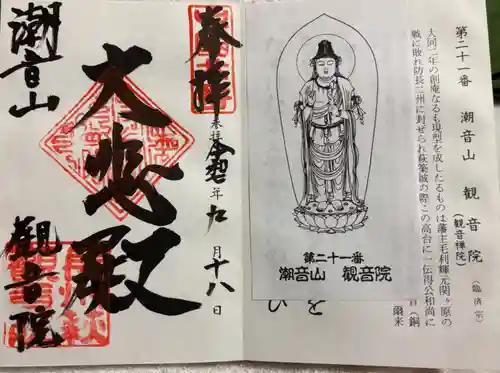 奉拝
来拝 令和 年 九月十八日
大悲殿
潮音山
観音院
第二十一番 潮音山 観音院
(観音禅院)
(臨済宗)
大同二年の創庵なるも現型を成したるものは藩主毛利輝元関ヶ原の
戦に敗れ防長二州に封ぜられ萩築城の際この高台に一伝得公和尚に
(銅
爾来
を
ひ
第二十一番
潮音山 観音院